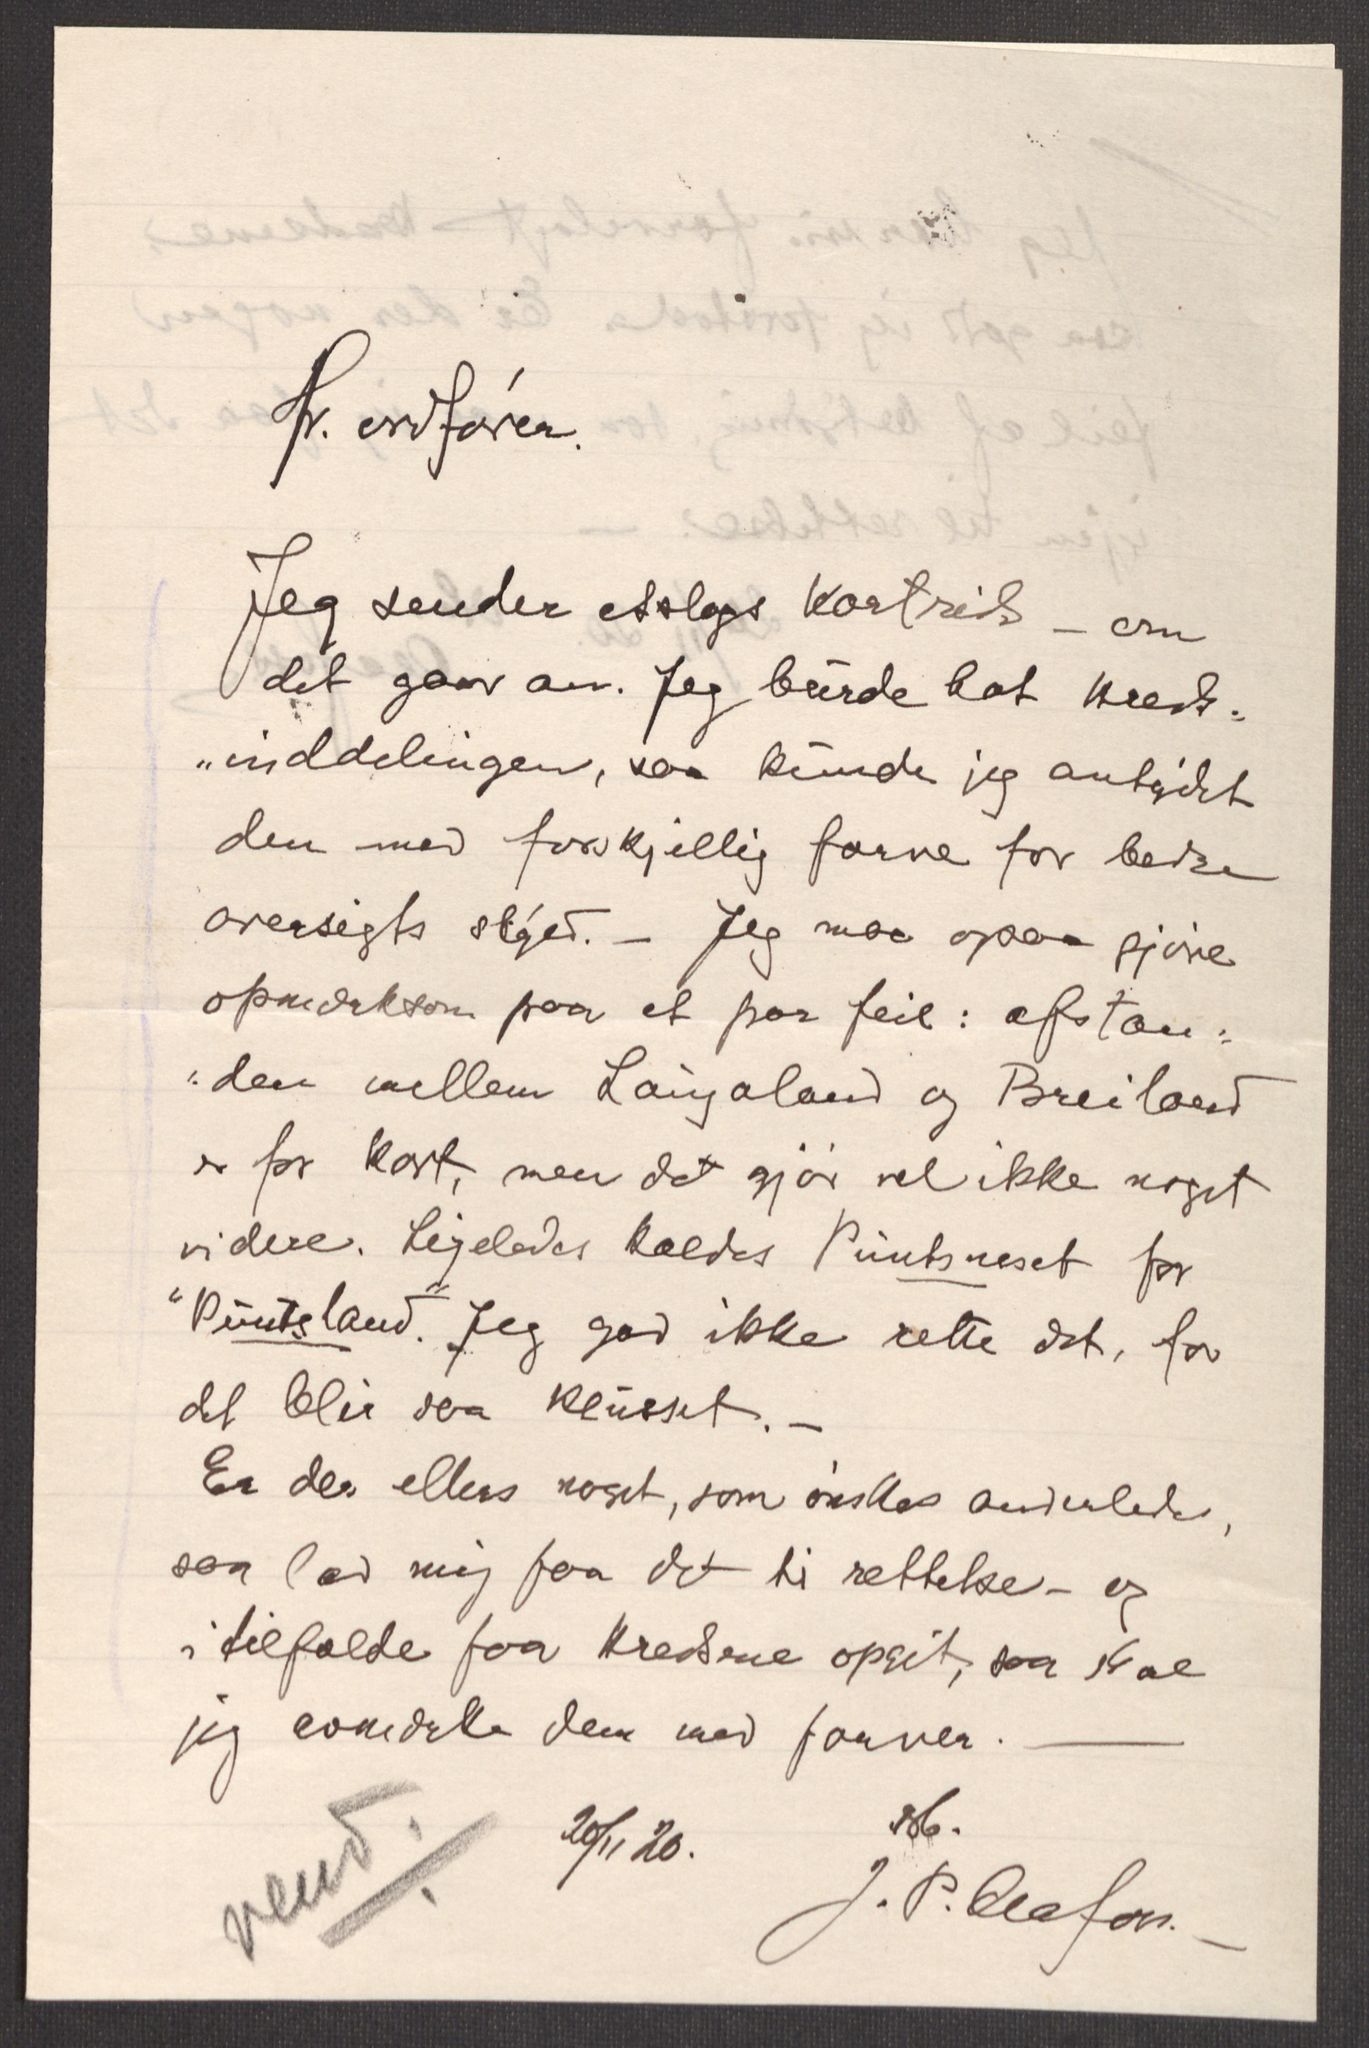 Hr. ordfører.
Jeg sender etslags kartrids – om
det gaar an. Jeg burde hat kreds-
"inddelingen, saa kunde jeg antydet
den med forskjellig farve for bedre
oversigts skyld. – Jeg maa ogsaa gjøre
opmerksom paa et par feil: afstan-
"den mellem Langaland og Breiland
er for kort, men det gjør vel ikke noget
videre. Ligeledes kaldes Puntsneset for
"Puntsland". Jeg gad ikke rette det, for
det blir saa klusset. –
Er der ellers noget, som ønskes anderledes,
saa lad mig faa det ti rettelse – og
i tilfælde faa kredsene opgit, saa skal
jeg avmerke dem med farver. —
20/11 20. rbg.
J. P. Olafsen. –
vend!